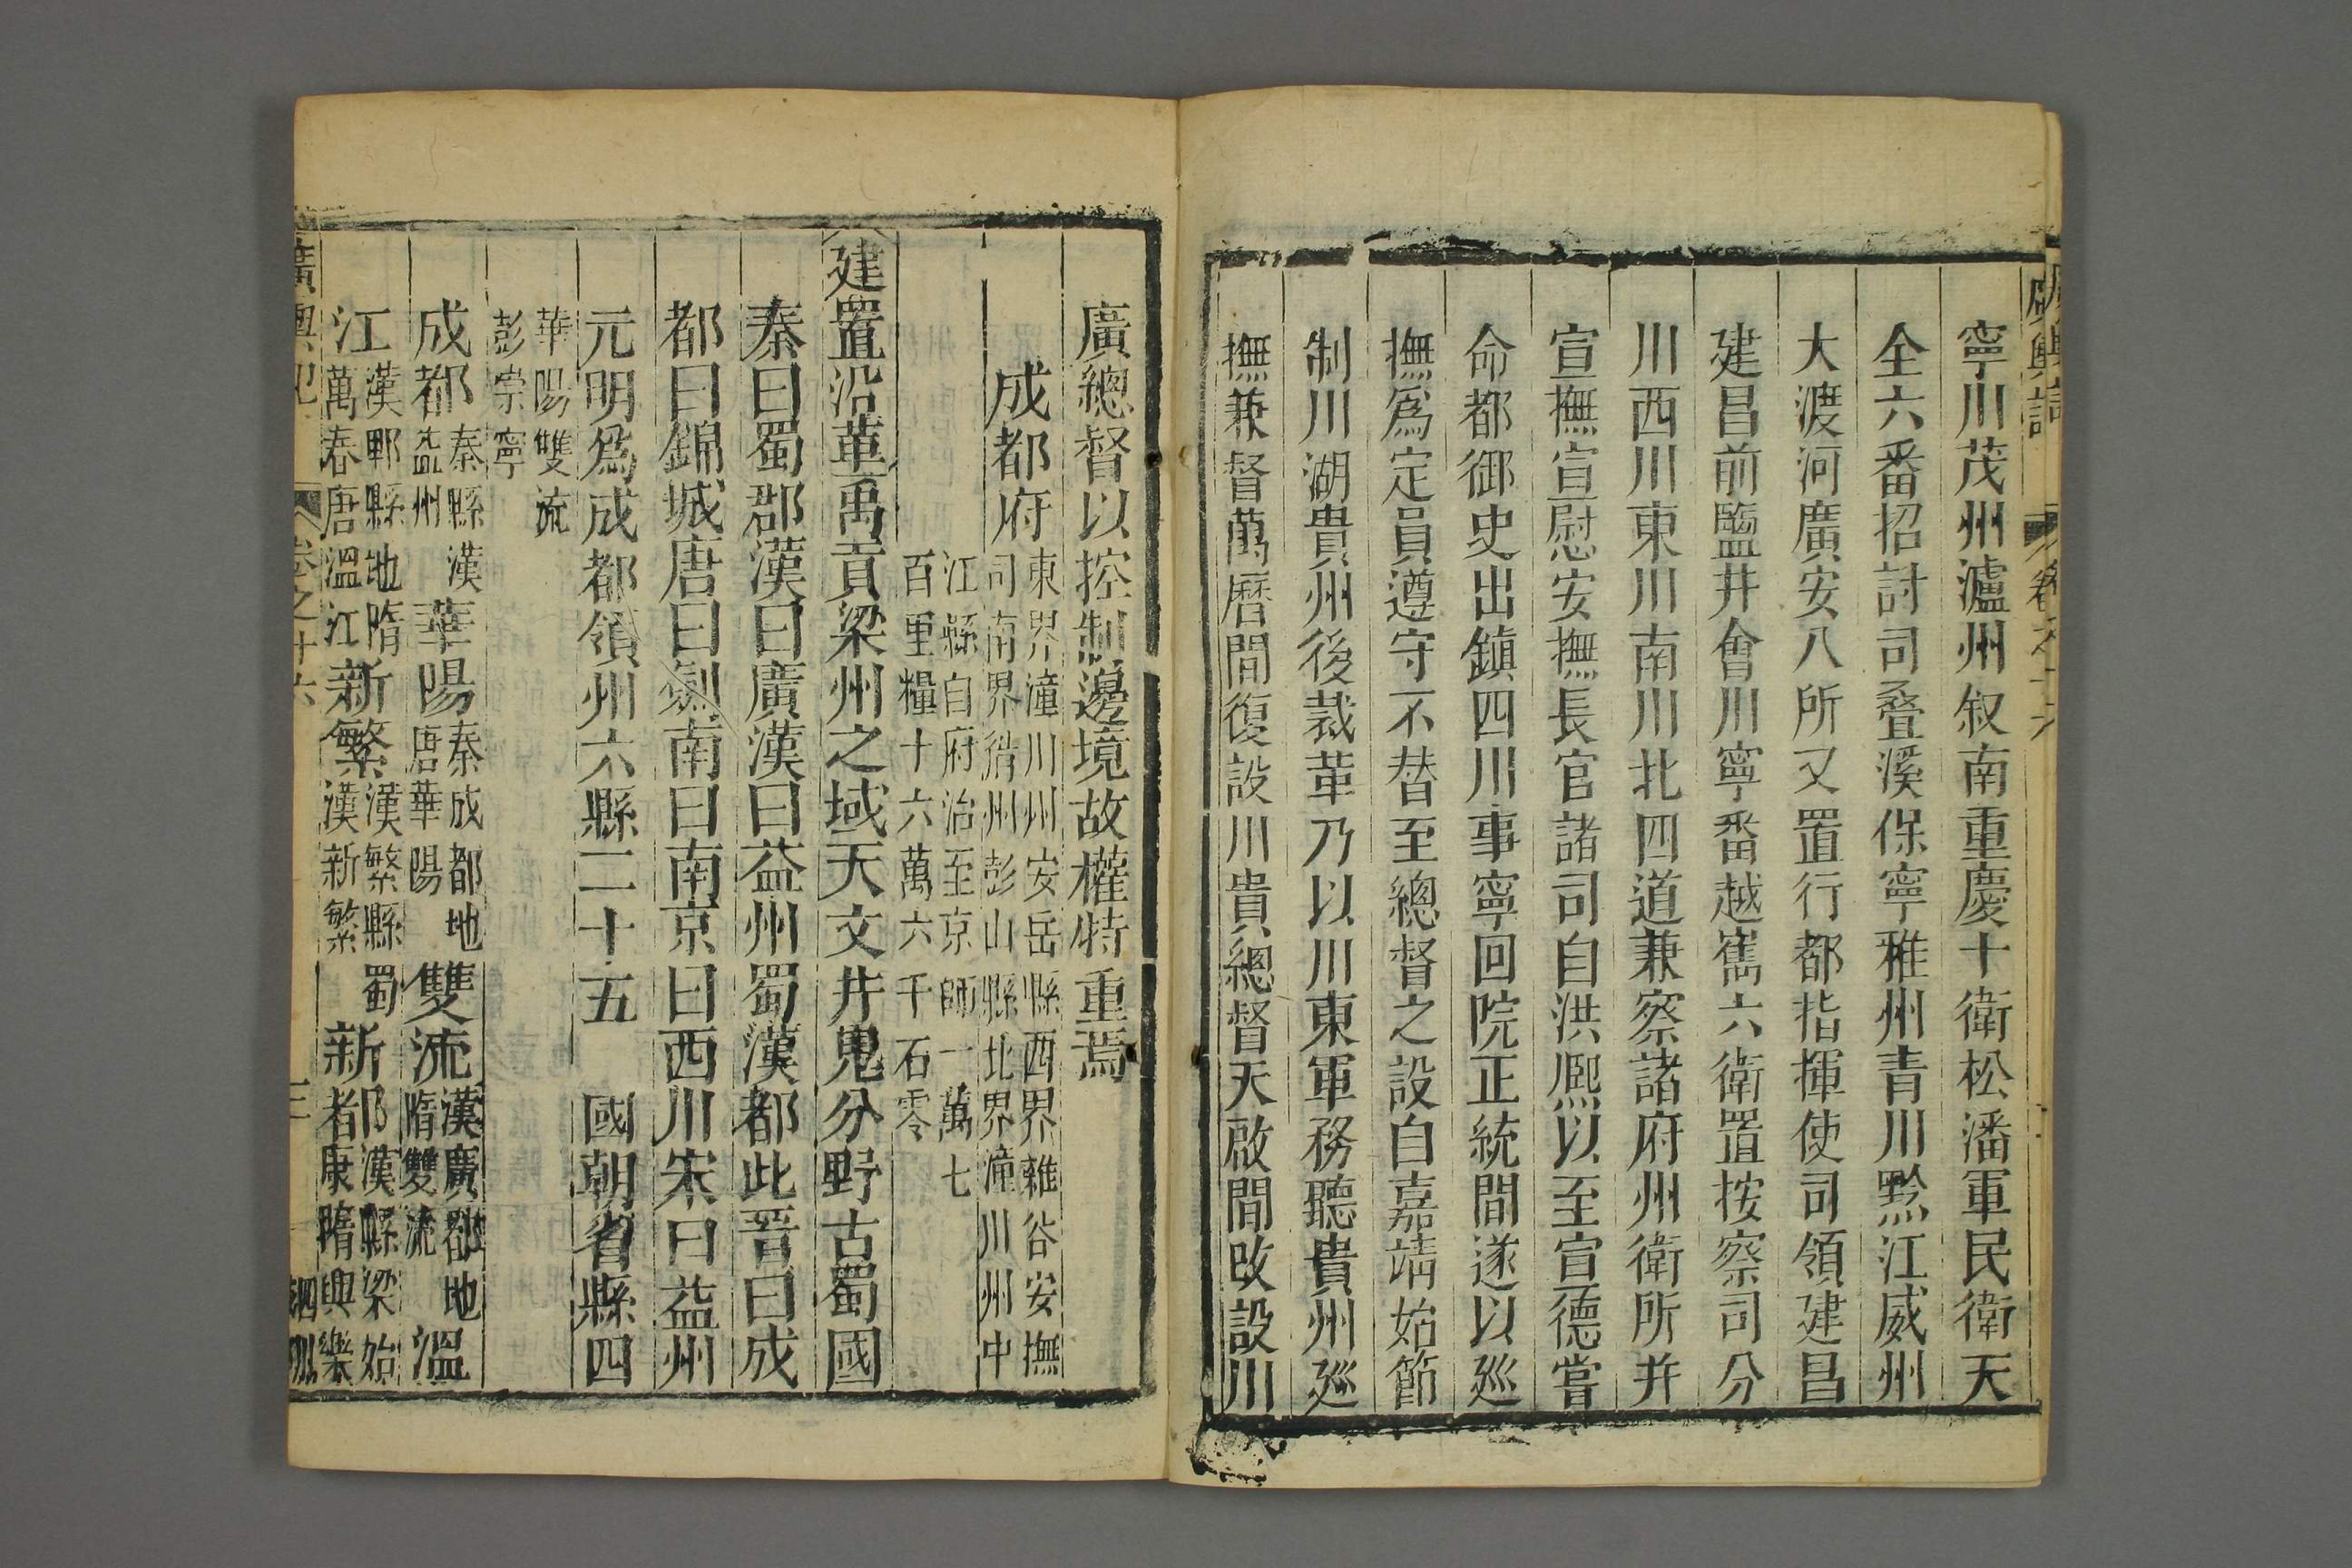 廣輿記 卷之十六
寧川茂州瀘州叙南重慶十衛松潘軍民衛天
全六番招討司疊溪保寧雅州青川黔江威州
大渡河廣安八所又置行都指揮使司領建昌
建昌前鹽井會川寧番越嶲六衛置按察司分
川西川東川南川北四道兼察諸府州衛所并
宣撫宣慰安撫長官諸司自洪熙以至宣德嘗
命都御史出鎮四川事寧回院正統間遂以廵
撫爲定員遵守不替至總督之設自嘉靖始節
制川湖貴州後裁革乃以川東軍務聽貴州廵
撫兼督萬曆間復設川貴總督天啟間改設川
廣總督以控制邊境故權特重焉
成都府 東界潼川州安岳縣西界雜谷安撫
司南界眉州彭山縣北界潼川州中
江縣自府治至京師一萬七
百里糧十六萬六千石零
建置沿革禹貢梁州之域天文井鬼分野古蜀國
秦曰蜀郡漢曰廣漢曰益州蜀漢都此晋曰成
都曰錦城唐曰劍南曰南京曰西川宋曰益州
元明爲成都領州六縣二十五 國朝省縣四
華陽雙流
彭崇寧
成都 秦縣漢
益州 華陽 秦成都地
唐華陽 雙流 漢廣都地
隋雙流 溫
江 漢郫縣地隋
萬春唐溫江 新繁 漢繁縣蜀
漢新繁 新都 漢縣梁始
康隋興樂
廣輿記 卷之十六 三